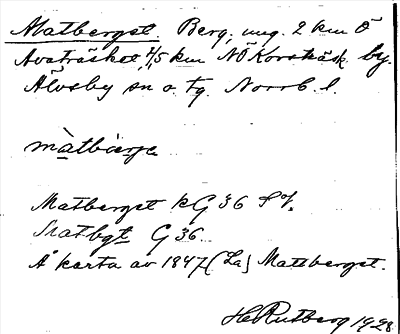 Matberget. Berg, ung. 2 km Ö
Avaträsket, 4,5 km NÖ Korsträsk by.
Älvsby sn o. tg. Norrb. l.
màtbærje
Matberget kG 36
Matbgt G 36
Å karta av 1847 (La) Mattberget.
H. Rutberg 1928